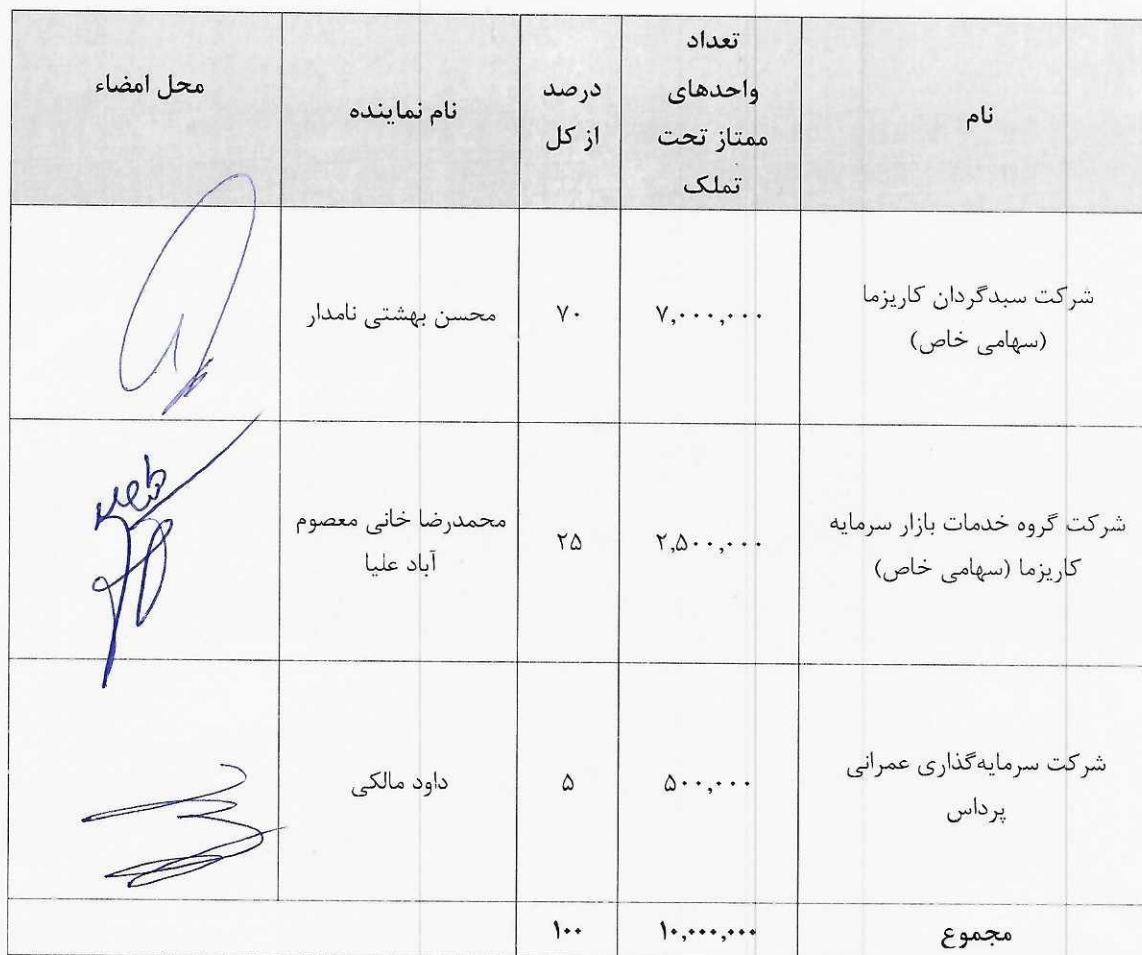 نام
تعداد
واحدهای
ممتاز تحت
تملک
درصد
از کل
نام نماینده
محل امضاء
شرکت سبدگردان کاریزما
(سهامی خاص)
۷,۰۰۰,۰۰۰
۷۰
محسن بهشتی نامدار
شرکت گروه خدمات بازار سرمایه
کاریزما (سهامی خاص)
۲,۵۰۰,۰۰۰
۲۵
محمدرضا خانی معصوم
آباد علیا
شرکت سرمایه‌گذاری عمرانی
پرداس
۵۰۰,۰۰۰
۵
داود مالکی
مجموع
۱۰,۰۰۰,۰۰۰
۱۰۰